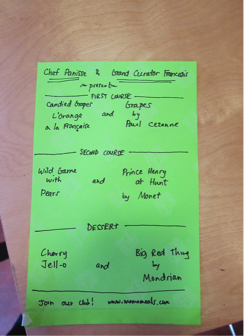 Chef Panisse & Grand Curator Francais
~ present ~
FIRST COURSE
Candied Grapes Grapes
L'Orange and by
a la Française Paul Cezanne
SECOND COURSE
Wild Game Prince Henry
with and at Hunt
Pears by Monet
DESSERT
Cherry Big Red Thing
Jell-o and by
Mondrian
Join our club! www.